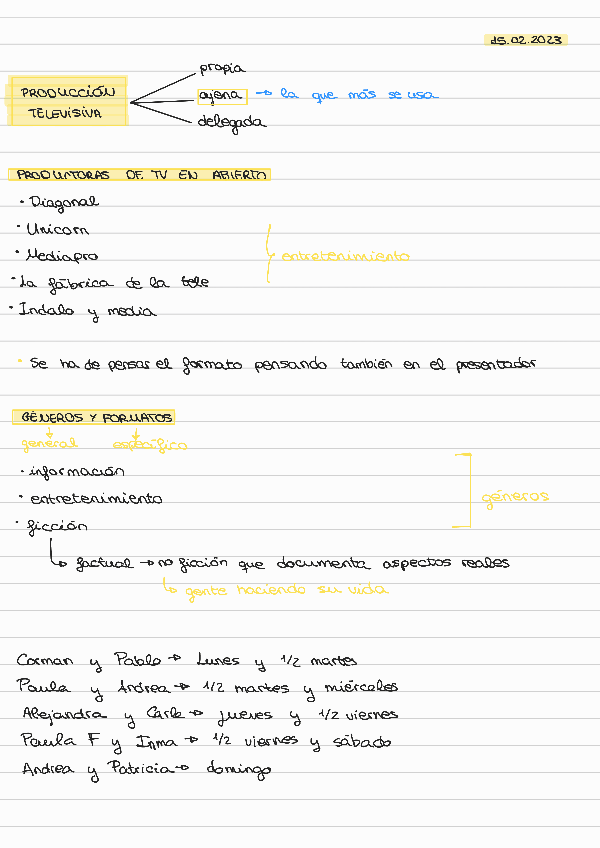 15.02.2023
PRODUCCIÓN TELEVISIVA
propia
ajena → la que más se usa
delegada
PRODUCTORAS DE TV EN ABIERTO
• Diagonal
• Unicorn
• Mediapro
entretenimiento
• La fábrica de la tele
• Indalo y media
• Se ha de pensar el formato pensando también en el presentador
GÉNEROS Y FORMATOS
general específico
• información
• entretenimiento
géneros
• ficción
↳ factual → no ficción que documenta aspectos reales
↳ gente haciendo su vida
Carman y Pablo → Lunes y 1/2 martes
Paula y Andrea → 1/2 martes y miércoles
Alejandra y Carla → jueves y 1/2 viernes
Paula F y Inma → 1/2 viernes y sábado
Andrea y Patricia → domingo